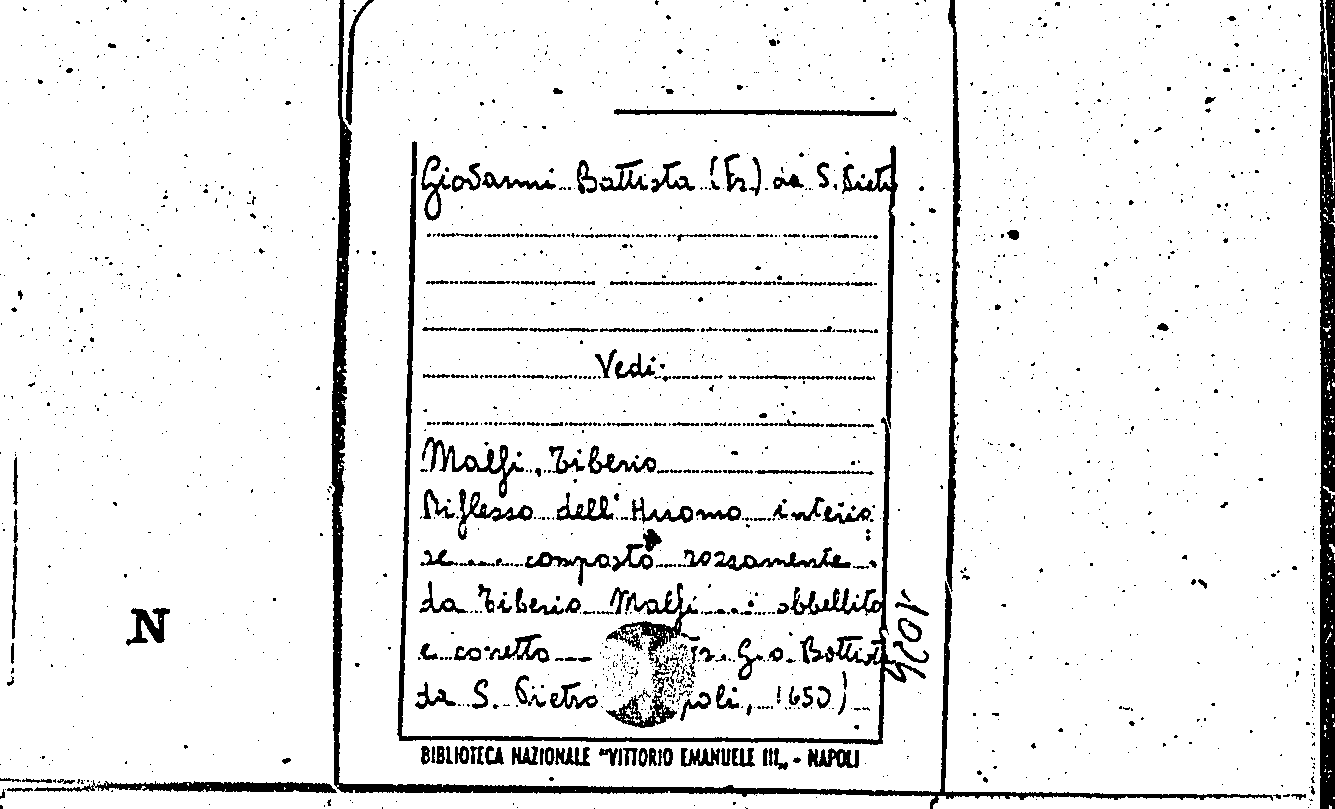 Giovanni Battista (Fr.) da S. Pietro
Vedi:
Malfi, Tiberio
Riflesso dell'Huomo interio
re .... composto rozzamente .
da Tiberio Malfi ... abbellito
e coretto ... Fr. Gio. Battista
da S. Pietro poli, 1650)
N
BIBLIOTECA NAZIONALE "VITTORIO EMANUELE III„ - NAPOLI